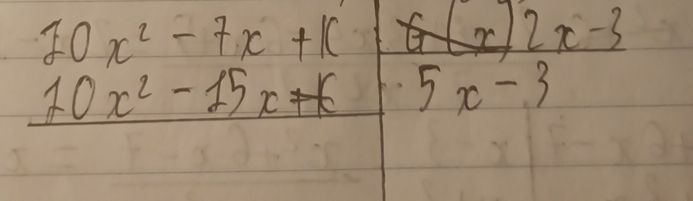 10x² - 7x + K | 2x - 3
10x² - 15x | 5x - 3